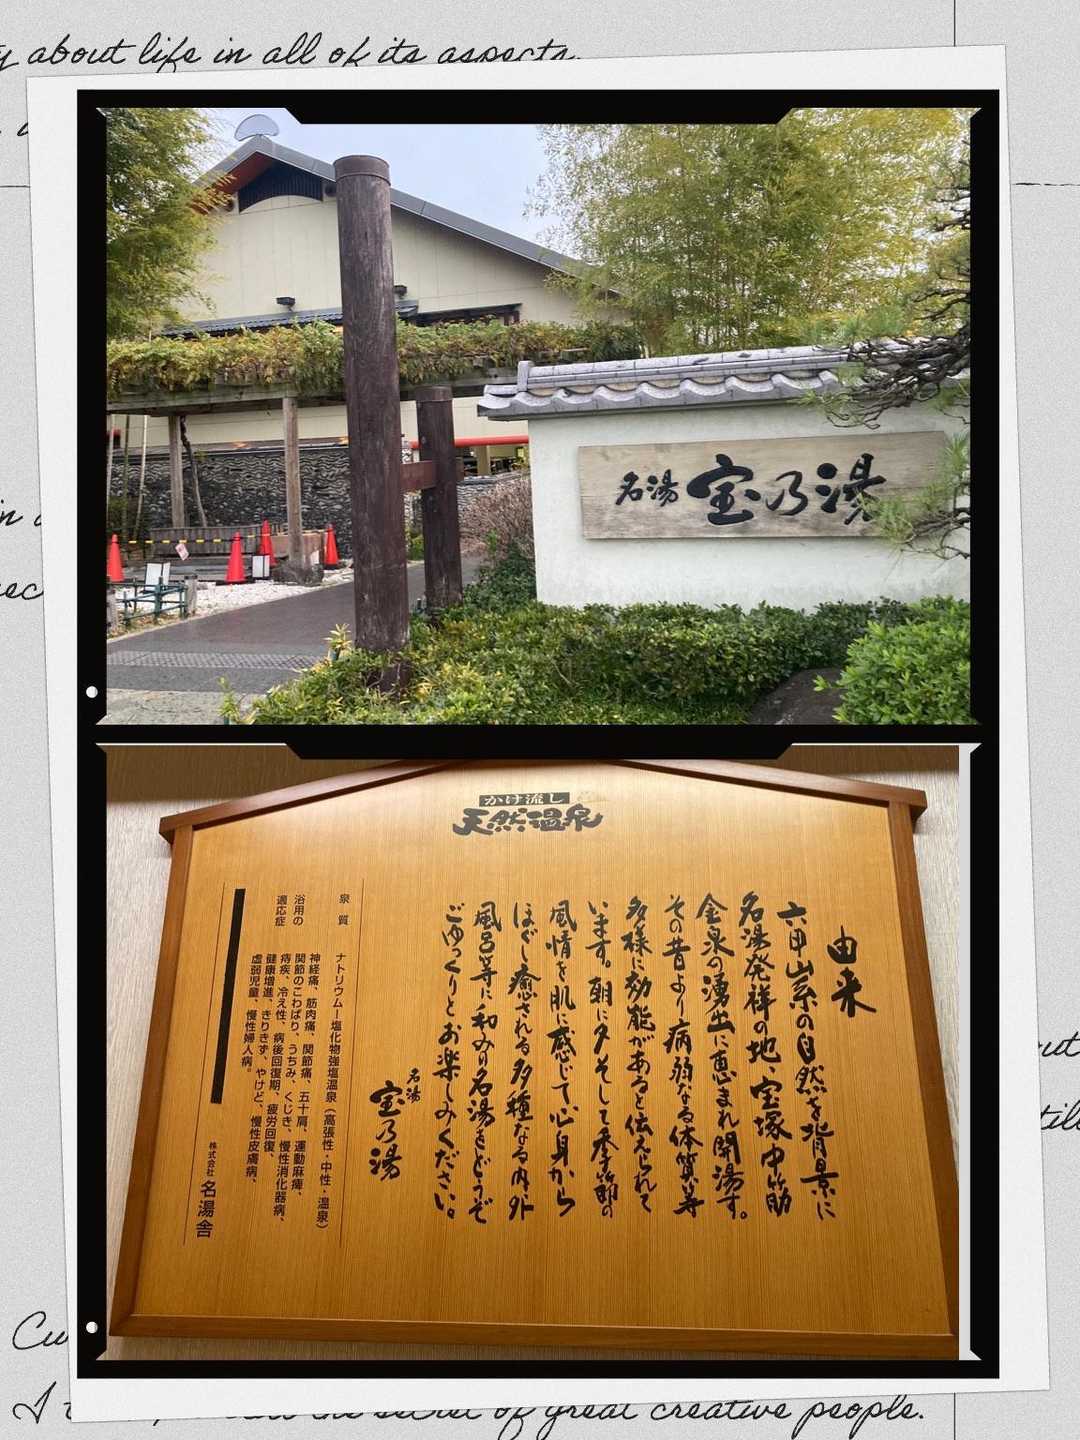 y about life in all of its aspects,
名湯 宝乃湯
かけ流し
天然温泉
由来
六甲山系の自然を背景に
名湯発祥の地、宝塚中筋
金泉の湧出に恵まれ開湯す。
その昔より病弱なる体質等
多様に効能があると伝えられて
います。朝に夕そして季節の
風情を肌に感じて心身から
ほぐし癒される多種なる内外
風呂等に和みの名湯をどうぞ
ごゆっくりとお楽しみください。
名湯
宝乃湯
泉質 ナトリウム－塩化物強塩温泉（高張性・中性・温泉）
浴用の適応症
神経痛、筋肉痛、関節痛、五十肩、運動麻痺、
関節のこわばり、うちみ、くじき、慢性消化器病、
痔疾、冷え性、病後回復期、疲労回復、
健康増進、きりきず、やけど、慢性皮膚病、
虚弱児童、慢性婦人病。
株式会社 名湯舎
the secret of great creative people.